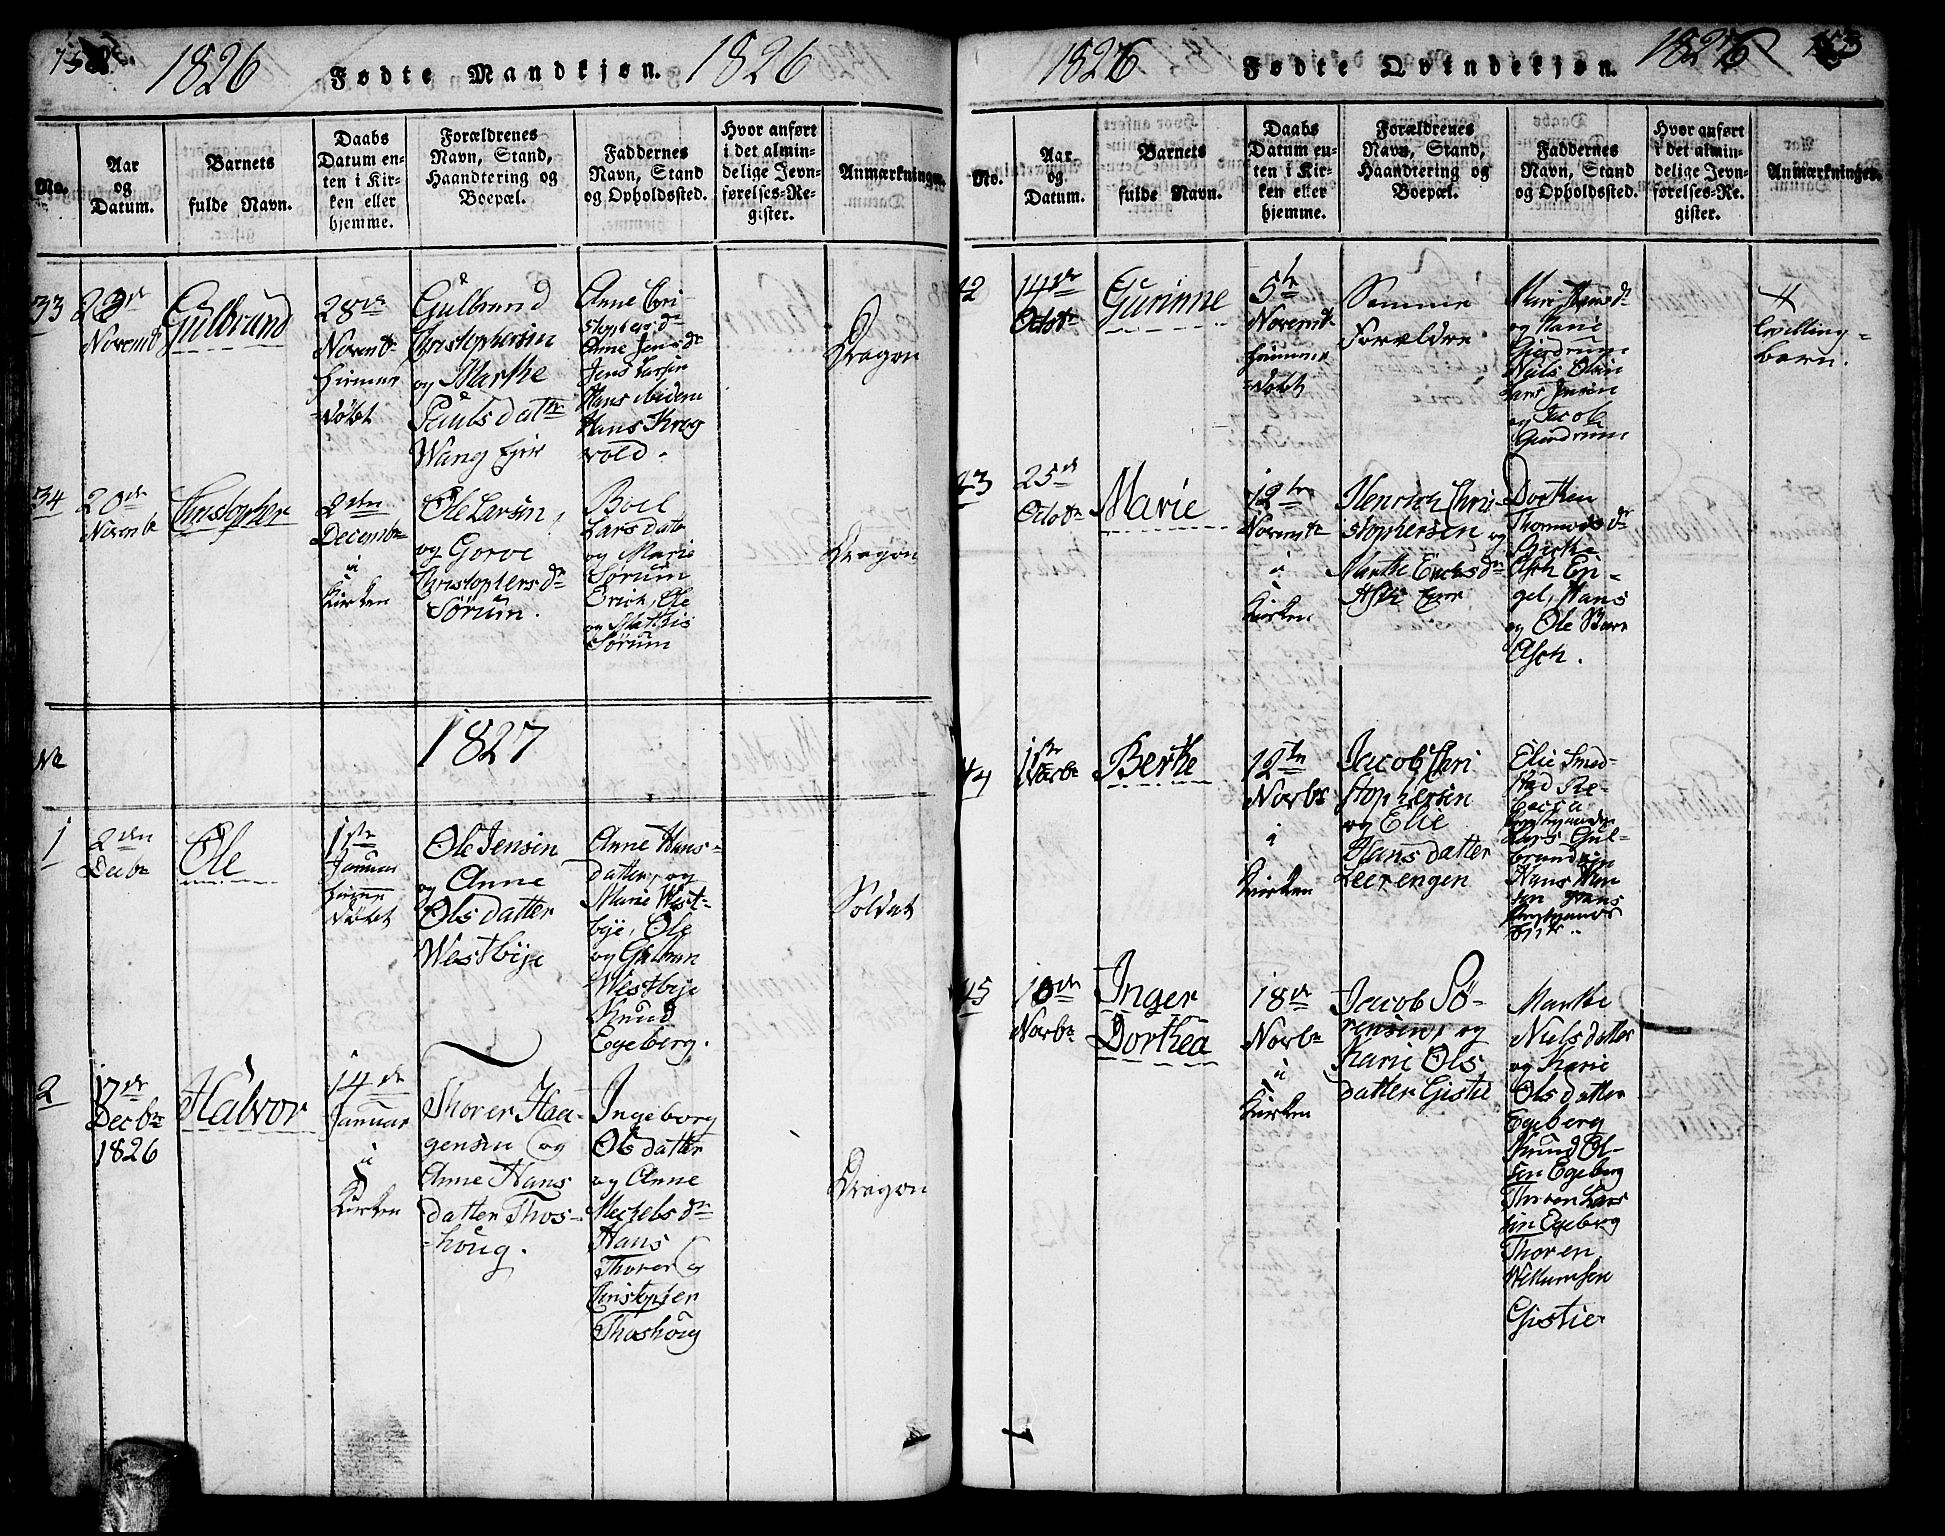 1826
Fødte Mandkjøn.
1826
No.
Aar
og
Datum.
Barnets
fulde Navn.
Daabs
Datum en-
ten i Kir-
ken eller
hjemme.
Forældrenes
Navn, Stand,
Haandtering og
Boepæl.
Faddernes
Navn, Stand
og Opholdssted.
Hvor anført
i det almin-
delige Jevn-
førelses-Re-
gister.
Anmærkninger.
33
Novembr
Gulbrand
28de
Novembr
hjemme
døbt
Gulbrand
Christophersen
og Marthe
Pauls datter
Wang Ejer
Anne Chri-
stophersdr
Anne Jensdr
Jens Larsen
Hans
Hans Krog
vold.
Dragon
34
20de
Novembr
Christopher
2den
Decembr
i
Kirken
Ole Larsen,
og Gorve
Christophersdr
Sørum.
Boel
Larsdatr
og Marie
Sørum
Erich, Ole
og Mathis
Sørum
Dragon
No
1827
1
2den
Decbr
Ole
1ste
Januar
hjemme
døbt
Ole Jensen
og Anne
Ols datter
Westbye
Anne Hans-
datter, og
Marie West-
bye, Ole
og Gulbran
Westbye
Knud
Egeberg.
Soldat
2
17de
Decbr
1826
Halvor
14de
Januar
i
Kirken
Thorer Haa-
gensen og
Anne Hans
datter Thos-
houg.
Ingeborg
Ols datter
og Anne
Mechelsdr
Hans
Thorer og
Christopher
Thoshoug
Dragon
1826
Fødte Qvindekjøn.
1826
153
No.
Aar
og
Datum.
Barnets
fulde Navn.
Daabs
Datum en-
ten i Kir-
ken eller
hjemme.
Forældrenes
Navn, Stand,
Haandtering og
Boepæl.
Faddernes
Navn, Stand
og Opholdssted.
Hvor anført
i det almin-
delige Jevn-
førelses-Re-
gister.
Anmærkninger.
42
14de
Octobr
Gurinne
5te
Novembr
hjemme
døbt
Samme
Forældre
Mari Hansdr
og Marie
Gjerdrum
Niels Olsen
Lars Jensen
og Jacob
Gjerdrum
Tvilling-
barn.
43
25de
Octobr
Marie
12te
Novembr
i
Kirken
Henrich Chri-
stophersen og
Marthe Erichsdr
Asch Ejer
Dorthea
Asch En-
gel, Hans
og Ole
Asch.
44
1ste
Novbr
Berthe
12te
Novbr
i
Kirken
Jacob Chri
stophersen
og Elie
Hans datter
Leerengen
Elie Smed-
stad Re-
becca
Lars Gul-
brandsen
Hans Han
sen
45
10de
Novbr
Inger
Dorthea
18de
Novbr
i
Kirken
Jacob Sø-
rensen, og
Kari Ols
datter Gistie
Marthe
Niels datter
og Karie
Ols datter
Egeberg
Knud Ol-
sen Egeberg
Thoren Lars
sen Egeberg
Thoren
Willumsen
Gistier